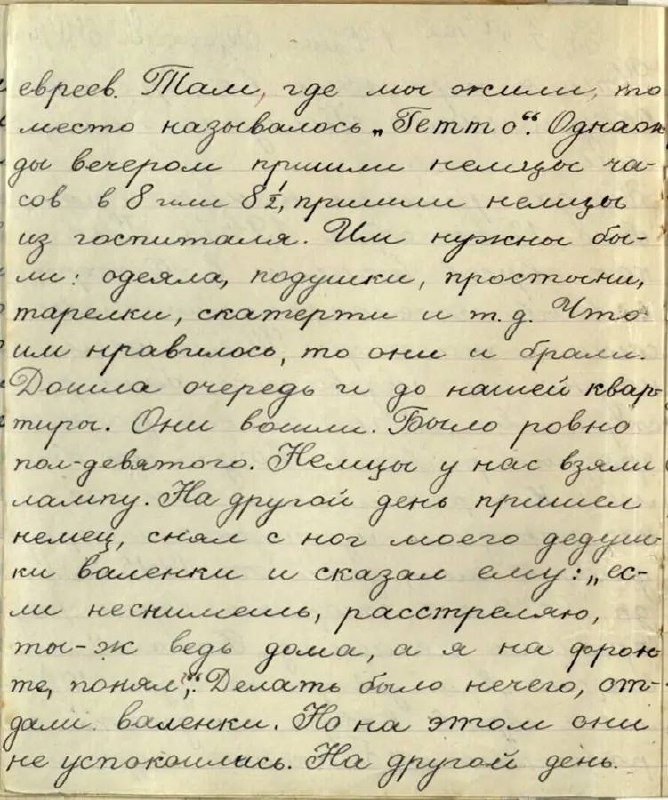 евреев. Там, где мы жили, то
место называлось „Гетто“. Однаж
ды вечером пришли немцы ча-
сов в 8 или 8½, пришли немцы
из госпиталя. Им нужны бы-
ли: одеяла, подушки, простыни,
тарелки, скатерти и т.д. Что
им нравилось, то они и брали.
Дошла очередь и до нашей квар-
тиры. Они вошли. Было ровно
пол-девятого. Немцы у нас взяли
лампу. На другой день пришел
немец, снял с ног моего дедуш-
ки валенки и сказал ему: „ес-
ли неснимешь, расстреляю,
ты-ж ведь дома, а я на фрон-
те, понял“. Делать было нечего, от-
дали валенки. Но на этом они
не успокоились. На другой день.